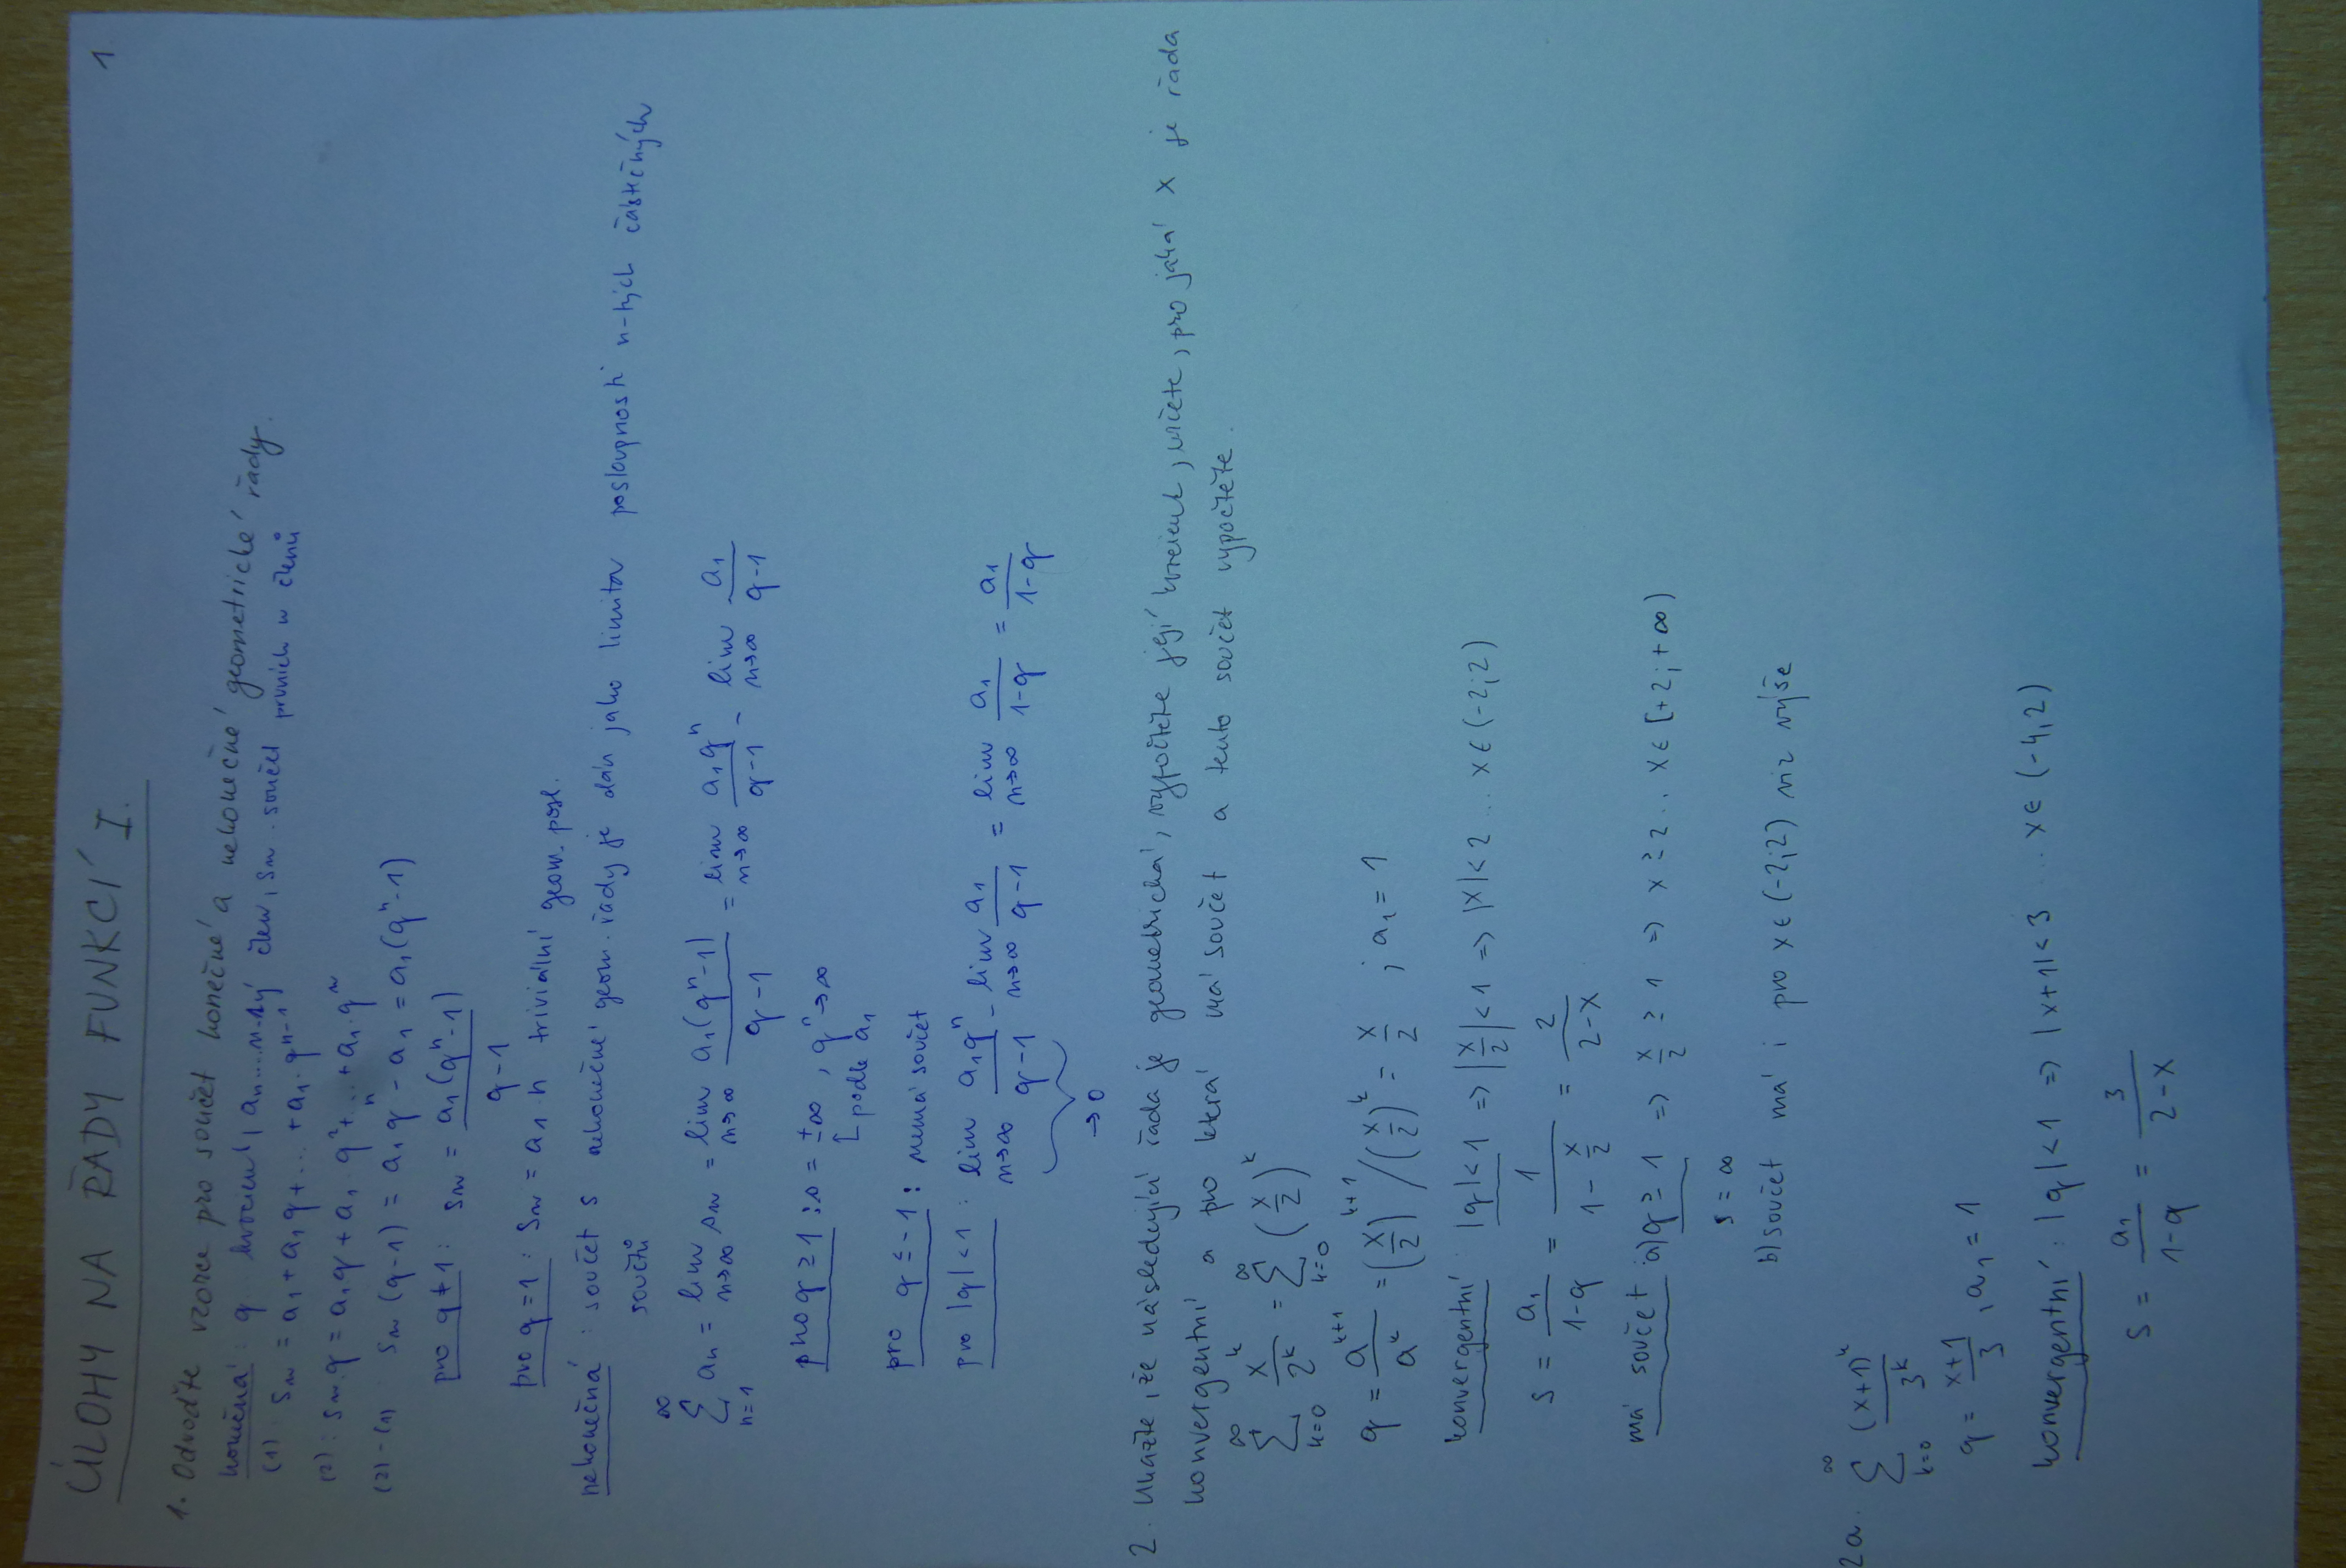 1
ÚLOHY NA ŘADY FUNKCÍ I.
1. Odvoďte vzorce pro součet konečné a nekonečné geometrické řady.
konečná: q... kvocient, aₙ.....n-tý člen, sₙ. součet prvních n členů
(1) sₙ = a₁ + a₁q + ... + a₁·qⁿ⁻¹
(2): sₙ·q = a₁q + a₁·q² + ... + a₁·qⁿ
(2)-(1): sₙ(q-1) = a₁qⁿ - a₁ = a₁(qⁿ-1)
pro q≠1: sₙ = a₁(qⁿ-1)/(q-1)
pro q=1: sₙ = a₁·n triviální geom. posl.
nekonečná: součet s nekonečné geom. řady je dán jako limita posloupnosti n-tých částečných
součtů
∑_{n=1}^{∞} aₙ = lim_{n→∞} sₙ = lim_{n→∞} a₁(qⁿ-1)/(q-1) = lim_{n→∞} a₁qⁿ/(q-1) - lim_{n→∞} a₁/(q-1)
pro q≥1: s = ±∞, qⁿ→∞
podle a₁
pro q≤-1: nemá součet
pro |q|<1: lim_{n→∞} a₁qⁿ/(q-1) - lim_{n→∞} a₁/(q-1) = lim_{n→∞} a₁/(1-q) = a₁/(1-q)
→0
2. Ukažte, že následující řada je geometrická, vypočtěte její kvocient, určete, pro jaká x je řada
konvergentní a pro která má součet a tento součet vypočtěte.
∑_{k=0}^{∞} xᵏ/2ᵏ = ∑_{k=0}^{∞} (x/2)ᵏ
q = aᵏ⁺¹/aᵏ = (x/2)ᵏ⁺¹/(x/2)ᵏ = x/2 ; a₁ = 1
konvergentní: |q|<1 => |x/2|<1 => |x|<2 ... x∈(-2;2)
s = a₁/(1-q) = 1/(1-x/2) = 2/(2-x)
má součet: a) q≥1 => x/2 ≥ 1 => x≥2 .. x∈[+2;+∞)
s = ∞
b) součet má i pro x∈(-2;2) viz výše
2a. ∑_{k=0}^{∞} (x+1)ᵏ/3ᵏ
q = (x+1)/3, a₁ = 1
konvergentní: |q|<1 => |x+1|<3 ... x∈(-4,2)
s = a₁/(1-q) = 3/(2-x)